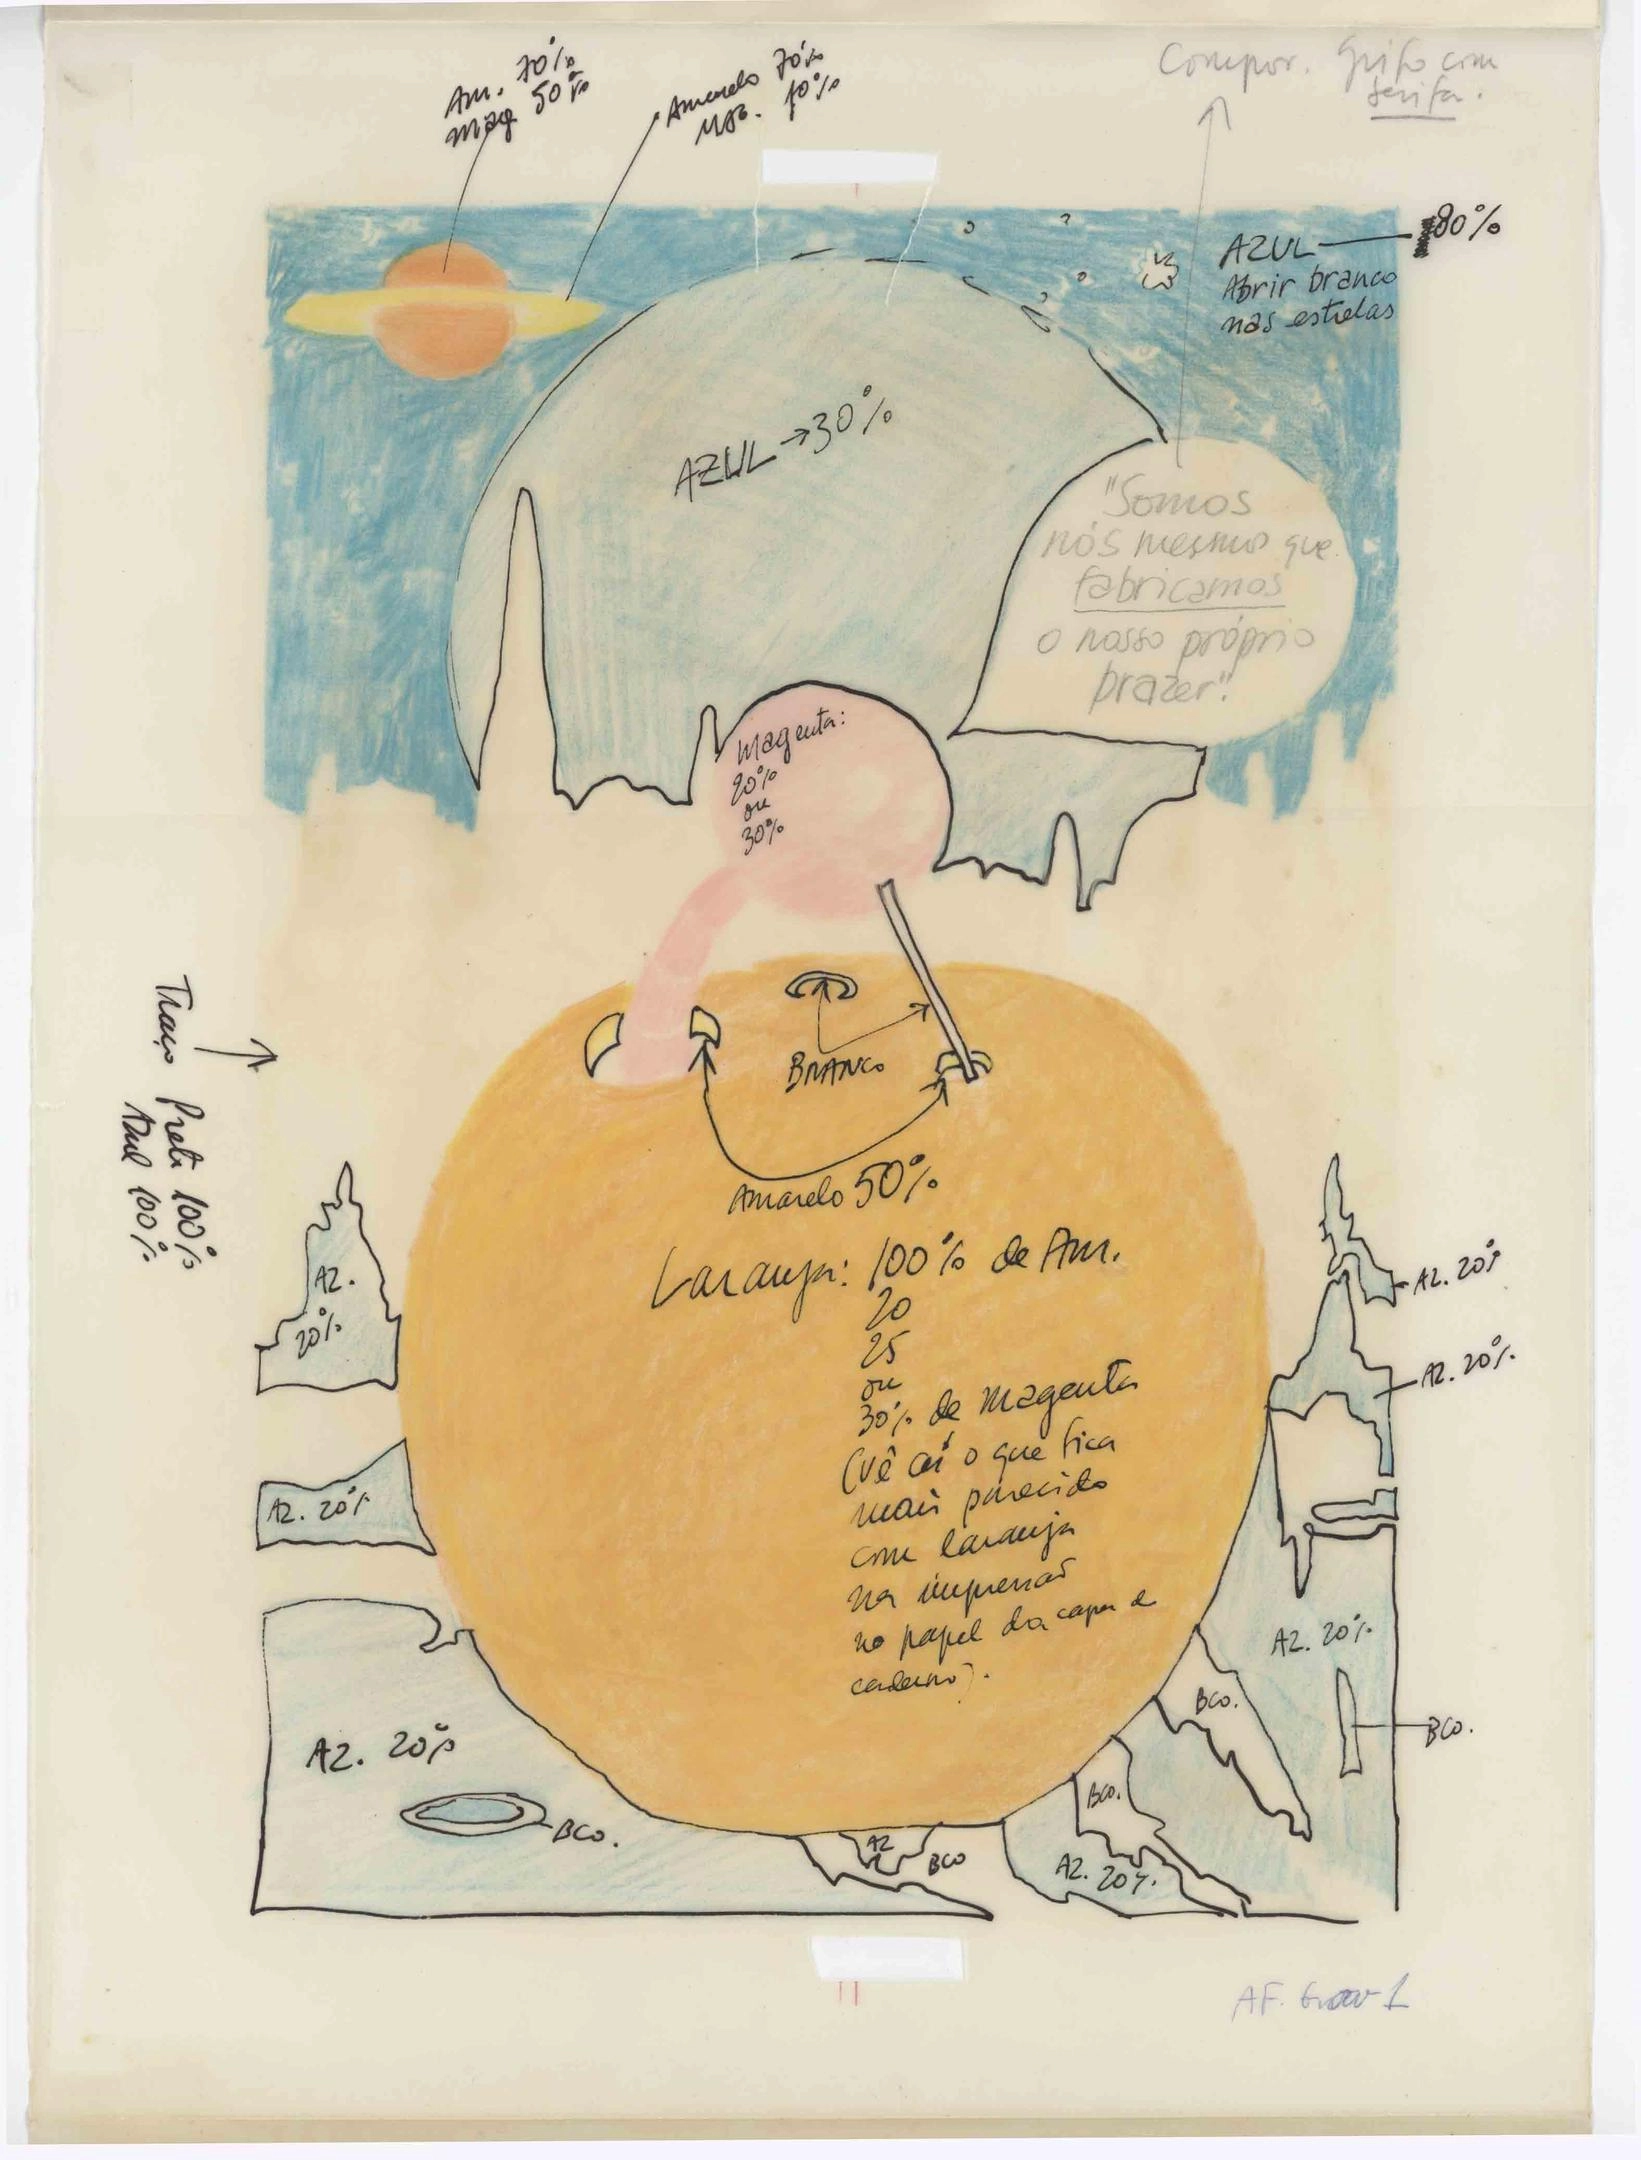 Am. 70%
Mag 50%
Amarelo 70%
10%
Compor. Grifo com
serifa.
AZUL
80%
Abrir branco
nas estrelas
AZUL → 30%
"Somos
nós mesmos que
fabricamos
o nosso próprio
prazer".
Magenta:
20%
ou
30%
BRANCO
Amarelo 50%
Traço Preto 100%
Azul 100%
Laranja: 100% de Am.
20
25
ou
30% de Magenta
(vê aí o que fica
mais parecido
com laranja
na impressão
no papel da capa do
caderno).
AZ.
20%
AZ. 20%
AZ. 20%
AZ. 20%
AZ. 20%
BCO.
BCO.
AZ. 20%
BCO.
BCO.
AZ
BCO
AZ. 20%.
AF.
1